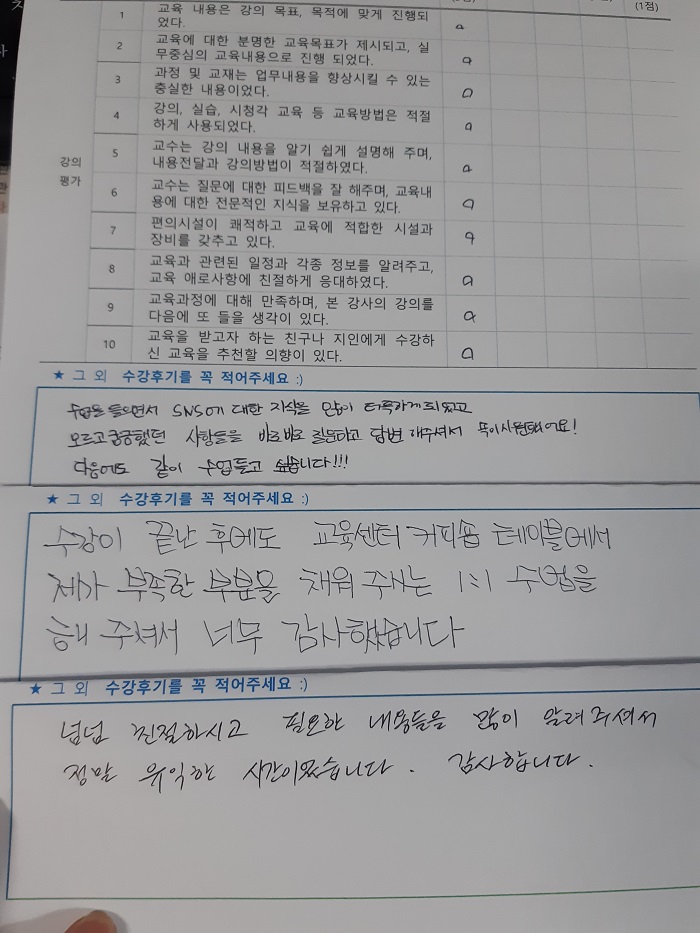 (1점)
1 교육 내용은 강의 목표, 목적에 맞게 진행되
었다.
2 교육에 대한 분명한 교육목표가 제시되고, 실
무중심의 교육내용으로 진행 되었다.
3 과정 및 교재는 업무내용을 향상시킬 수 있는
충실한 내용이었다.
4 강의, 실습, 시청각 교육 등 교육방법은 적절
하게 사용되었다.
강의
평가
5 교수는 강의 내용을 알기 쉽게 설명해 주며,
내용전달과 강의방법이 적절하였다.
6 교수는 질문에 대한 피드백을 잘 해주며, 교육내
용에 대한 전문적인 지식을 보유하고 있다.
7 편의시설이 쾌적하고 교육에 적합한 시설과
장비를 갖추고 있다.
8 교육과 관련된 일정과 각종 정보를 알려주고,
교육 애로사항에 친절하게 응대하였다.
9 교육과정에 대해 만족하며, 본 강사의 강의를
다음에 또 들을 생각이 있다.
10 교육을 받고자 하는 친구나 지인에게 수강하
신 교육을 추천할 의향이 있다.
★ 그 외 수강후기를 꼭 적어주세요 :)
수업을 들으면서 SNS에 대한 지식을 많이 터득하게 되었고
모르고 궁금했던 사항들을 바로바로 질문하고 답변 해주셔서 도움이
다음에도 같이 수업듣고 싶습니다!!!
★ 그 외 수강후기를 꼭 적어주세요 :)
수강이 끝난 후에도 교육센터 커피숍 테이블에서
제가 부족한 부분을 채워 주시는 1:1 수업을
해 주셔서 너무 감사했습니다
★ 그 외 수강후기를 꼭 적어주세요 :)
넘넘 친절하시고 필요한 내용들을 많이 알려주셔서
정말 유익한 시간이었습니다. 감사합니다.